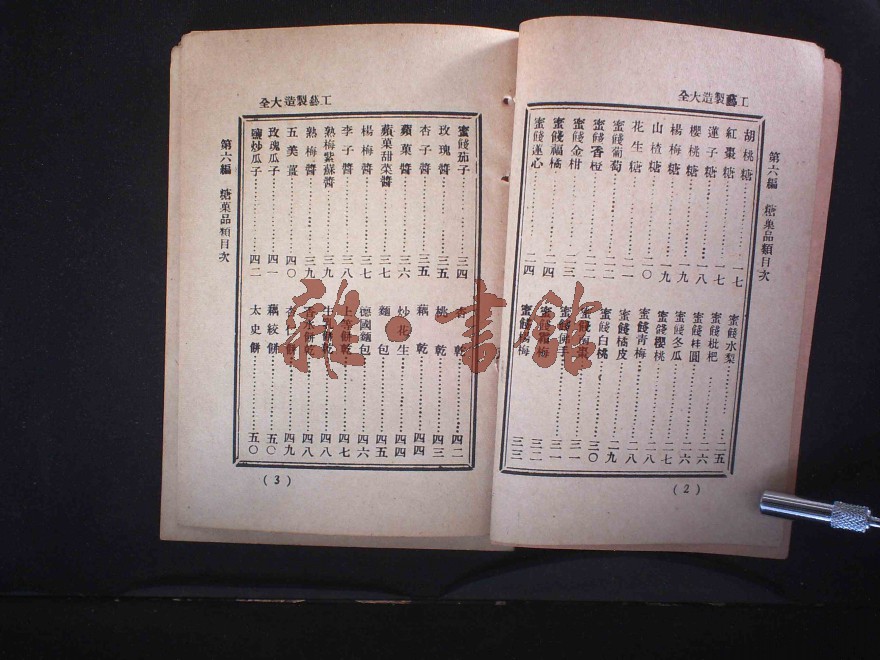 工藝製造大全
第六編 糖菓品類目次
胡桃糖…………一七
紅棗糖…………
蓮子糖…………一八
櫻桃糖…………一九
楊梅糖…………一九
山楂糖…………二〇
花生糖…………二一
蜜餞葡萄…………二二
蜜餞香橙…………二二
蜜餞金柑…………二三
蜜餞福橘…………二四
蜜餞蓮心…………二四
蜜餞水梨…………二五
蜜餞枇杷…………二六
蜜餞桂圓…………二六
蜜餞冬瓜…………二七
蜜餞櫻桃…………二八
蜜餞青梅…………二八
蜜餞橘皮…………二九
蜜餞白桃…………三〇
蜜餞…………三一
蜜餞佛手…………三一
蜜餞梅…………三二
蜜餞楊梅…………三三
(2)
工藝製造大全
第六編 糖菓品類目次
蜜餞茄子…………三四
玫瑰醬…………三五
杏子醬…………三五
蘋菓醬…………三六
蘋菓甜菜醬…………三七
楊梅醬…………三七
李子醬…………三八
熟梅紫蘇醬…………三九
熟梅醬…………三九
五美薑…………四〇
玫瑰瓜子…………四一
鹽炒瓜子…………四二
杏乾…………四二
桃乾…………四三
藕乾…………四四
炒花生…………四四
麵包…………四五
德國麵包…………四六
上等餅乾…………四七
牛乳餅乾…………四八
香水餅乾…………四八
杏仁餅…………四九
藕絞餅…………五〇
太史餅…………五〇
(3)
雜·書館